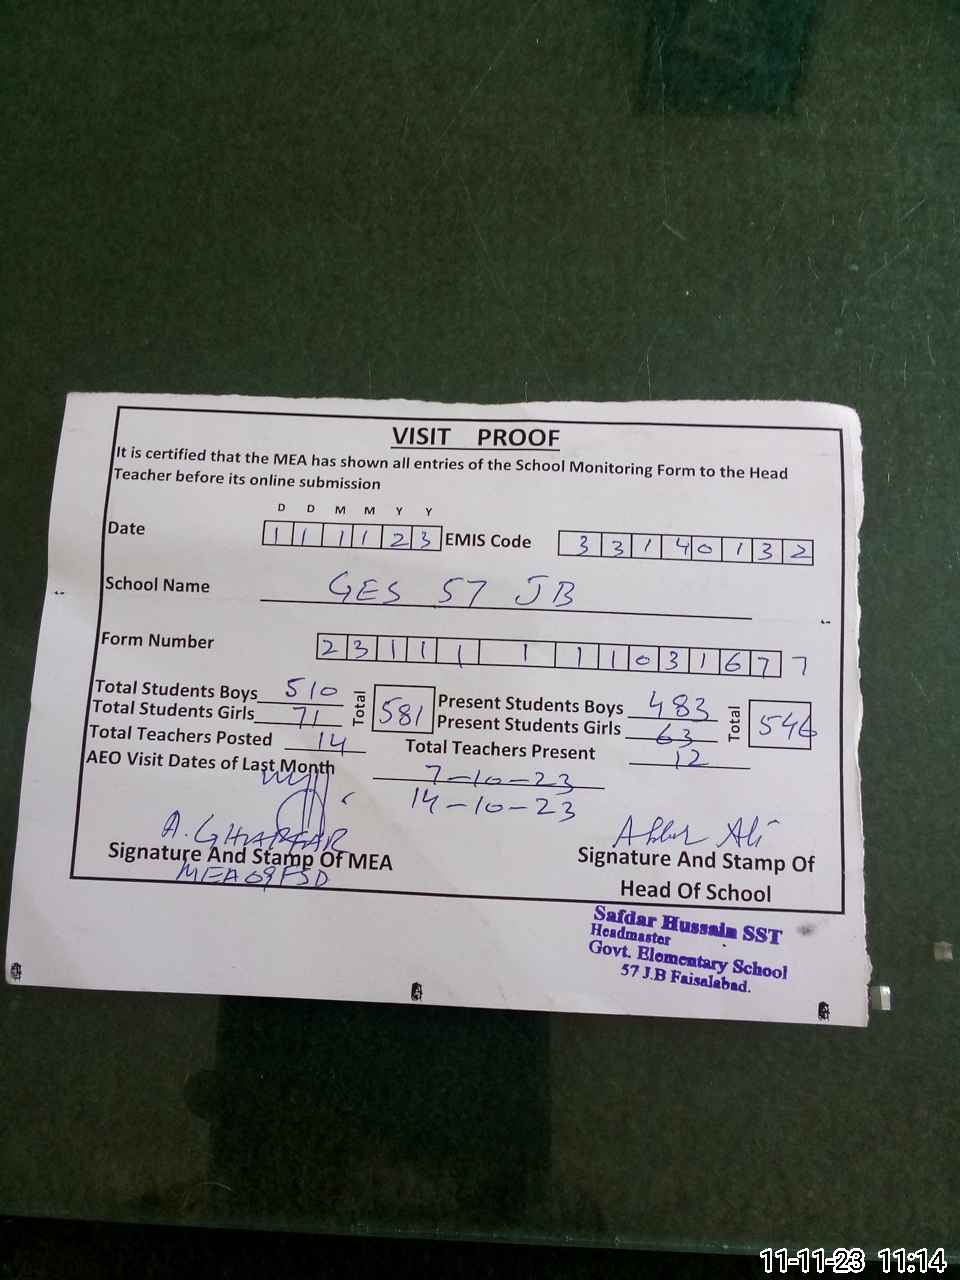 VISIT PROOF
It is certified that the MEA has shown all entries of the School Monitoring Form to the Head
Teacher before its online submission
D D M M Y Y
Date 1 1 1 1 2 3 EMIS Code 3 3 1 4 0 1 3 2
School Name GES 57 JB
Form Number 2 3 1 1 1 1 1 1 1 0 3 1 6 7 7
Total Students Boys 510 Total 581 Present Students Boys 483 Total 546
Total Students Girls 71 Present Students Girls 63
Total Teachers Posted 14 Total Teachers Present 12
AEO Visit Dates of Last Month 7-10-23
14-10-23
A. GHAFFAR Ali
Signature And Stamp Of MEA Signature And Stamp Of
MEA 09 FSD Head Of School
Safdar Hussain SST
Headmaster
Govt. Elementary School
57 J.B Faisalabad.
11-11-23 11:14